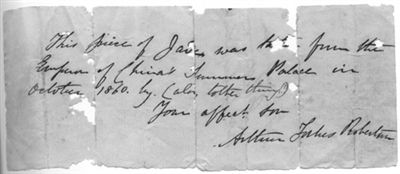 This piece of Jade was tak[e]n from the
Emperor of China's Summer Palace in
October 1860. by (also other things)
Your affect son
Arthur Forbes Robertson